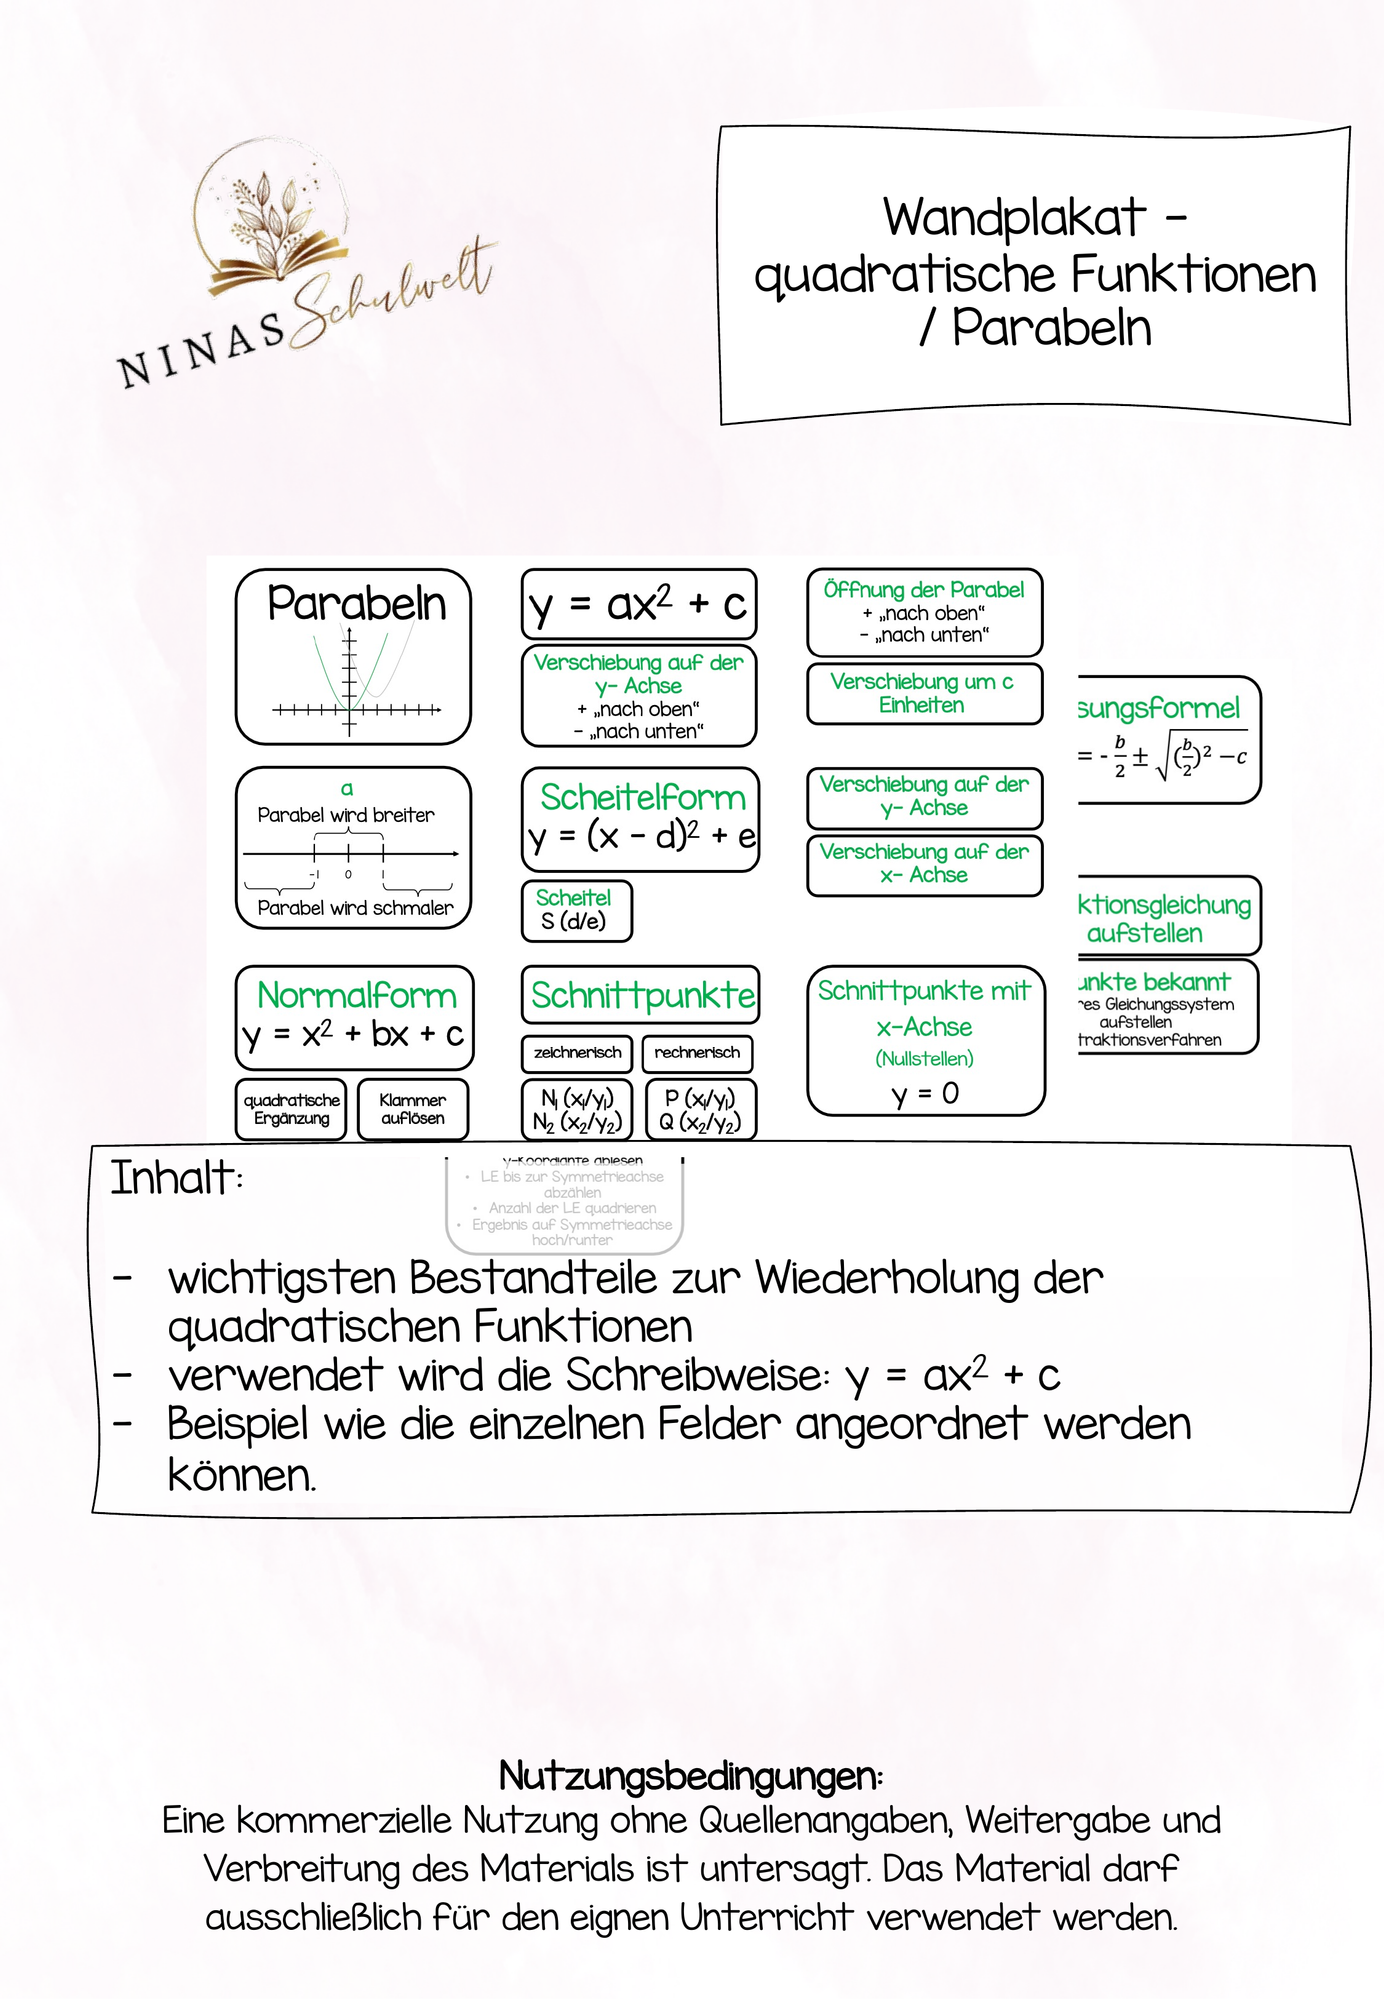 NINAS Schulwelt
Wandplakat -
quadratische Funktionen
/ Parabeln
Parabeln
y = ax² + c
Verschiebung auf der
y- Achse
+ „nach oben“
- „nach unten“
Öffnung der Parabel
+ „nach oben“
- „nach unten“
Verschiebung um c
Einheiten
sungsformel
= - b/2 ± √(b/2)² − c
a
Parabel wird breiter
-1 0 1
Parabel wird schmaler
Scheitelform
y = (x - d)² + e
Scheitel
S (d/e)
Verschiebung auf der
y- Achse
Verschiebung auf der
x- Achse
ktionsgleichung
aufstellen
unkte bekannt
res Gleichungssystem
aufstellen
traktionsverfahren
Normalform
y = x² + bx + c
quadratische
Ergänzung
Klammer
auflösen
Schnittpunkte
zeichnerisch
rechnerisch
N₁ (x₁/y₁)
N₂ (x₂/y₂)
P (x₁/y₁)
Q (x₂/y₂)
Schnittpunkte mit
x-Achse
(Nullstellen)
y = 0
Inhalt:
y-Koordiante ablesen
• LE bis zur Symmetrieachse
abzählen
• Anzahl der LE quadrieren
• Ergebnis auf Symmetrieachse
hoch/runter
- wichtigsten Bestandteile zur Wiederholung der
quadratischen Funktionen
- verwendet wird die Schreibweise: y = ax² + c
- Beispiel wie die einzelnen Felder angeordnet werden
können.
Nutzungsbedingungen:
Eine kommerzielle Nutzung ohne Quellenangaben, Weitergabe und
Verbreitung des Materials ist untersagt. Das Material darf
ausschließlich für den eignen Unterricht verwendet werden.